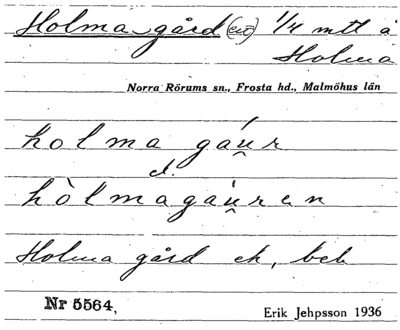 Holma gård (en) 1/4 mtl å
Holma
Norra Rörums sn., Frosta hd., Malmöhus län
holma gáu̯r
el.
hòlmagáu̯ren
Holma gård ek, beb
Nr 5564,
Erik Jehpsson 1936